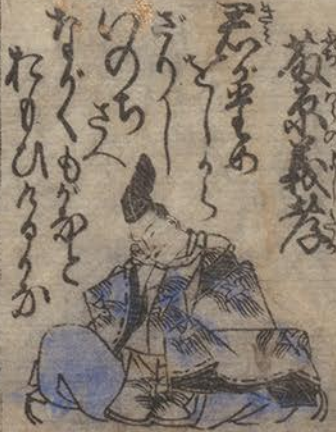 藤原義孝
君がため
をしから
ざりし
いのち
さへ
ながくもがなと
おもひけるかな